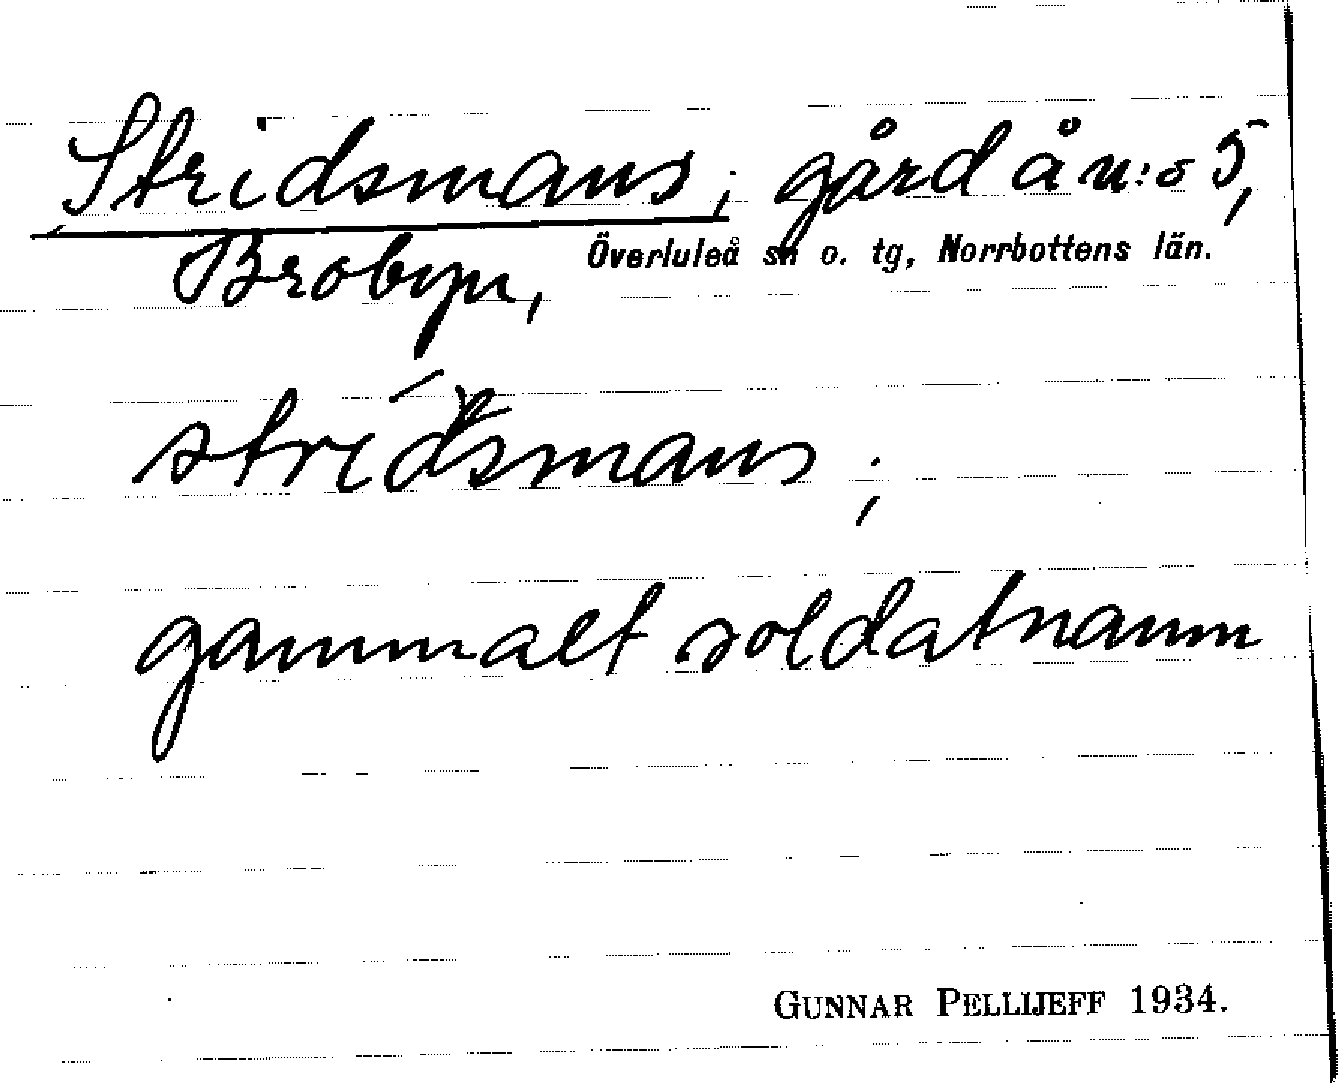 Stridsmans; gård å n:o 5,
Brobyn, Överluleå sn o. tg, Norrbottens län.
strídsmans;
gammalt soldatnamn
GUNNAR PELLIJEFF 1934.